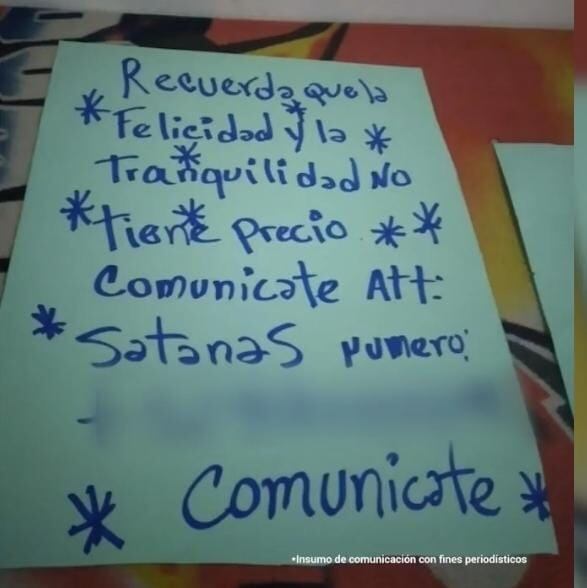 Recuerda que la
* Felicidad y la *
Tranquilidad No
* tiene precio * *
Comunicate Att:
* Satanas numero:
* Comunicate *
*Insumo de comunicación con fines periodísticos